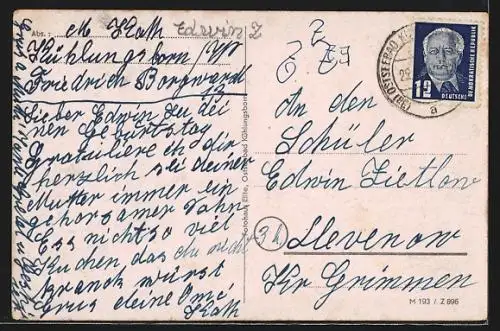 Abs.: M Kath
Edwin Z
Kühlungsborn
Friedrich Borgward
13
Lieber Edwin zu dei
nen Geburtstag
Gratuliere ich dir
herzlich sei deiner
Mutter immer ein
gehorsamer Sohn
Ess nicht so viel
Kuchen das du nicht
kranck wirst
Grus deine Omi
Kath
Fotohaus Elite, Ostseebad Kühlungsborn
DEUTSCHE DEMOKRATISCHE REPUBLIK
12
OSTSEEBAD
a
An den
Schüler
Edwin Zietlow
Llevenow
Kr Grimmen
M 193 / Z 896